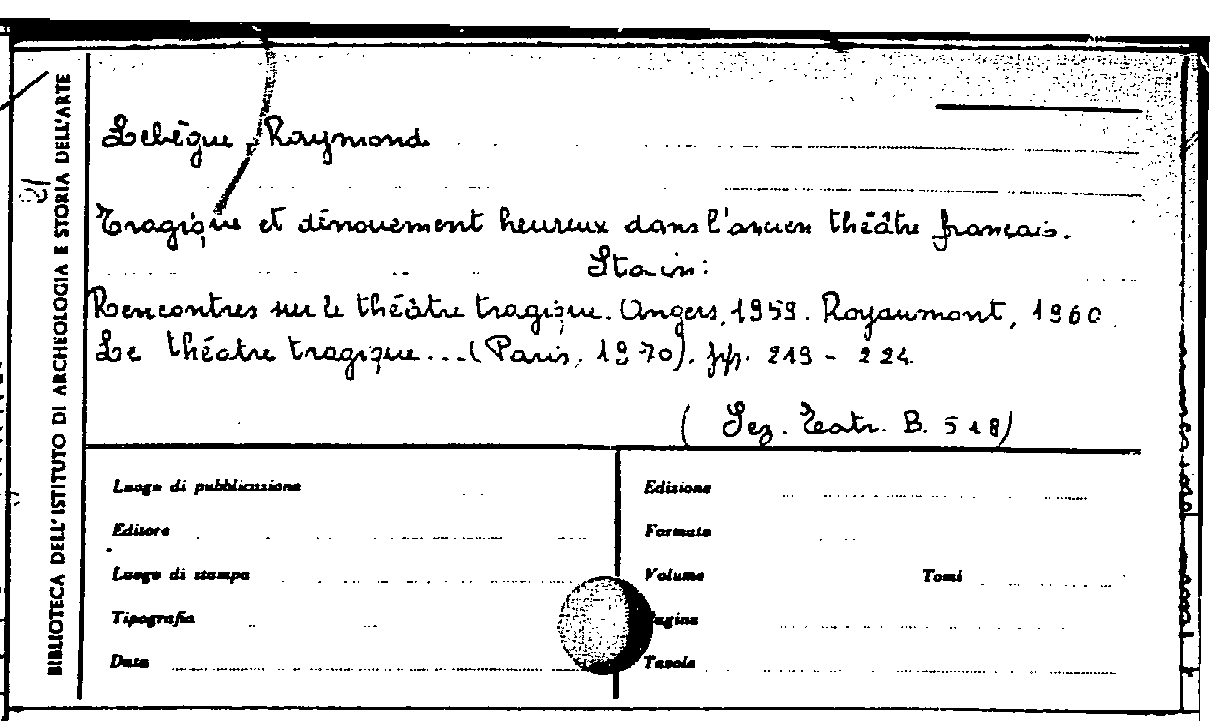 BIBLIOTECA DELL'ISTITUTO DI ARCHEOLOGIA E STORIA DELL'ARTE
Lebègue, Raymond
Tragique et dénouement heureux dans l'ancien théâtre français.
Sta in:
Rencontres sur le théâtre tragique. Angers, 1959. Royaumont, 1960
Le théatre tragique...(Paris, 1970), pp. 219 - 224
(Sez. Teatr. B. 518)
Luogo di pubblicazione
Editore
Luogo di stampa
Tipografia
Data
Edizione
Formato
Volume Tomi
Pagine
Tavole